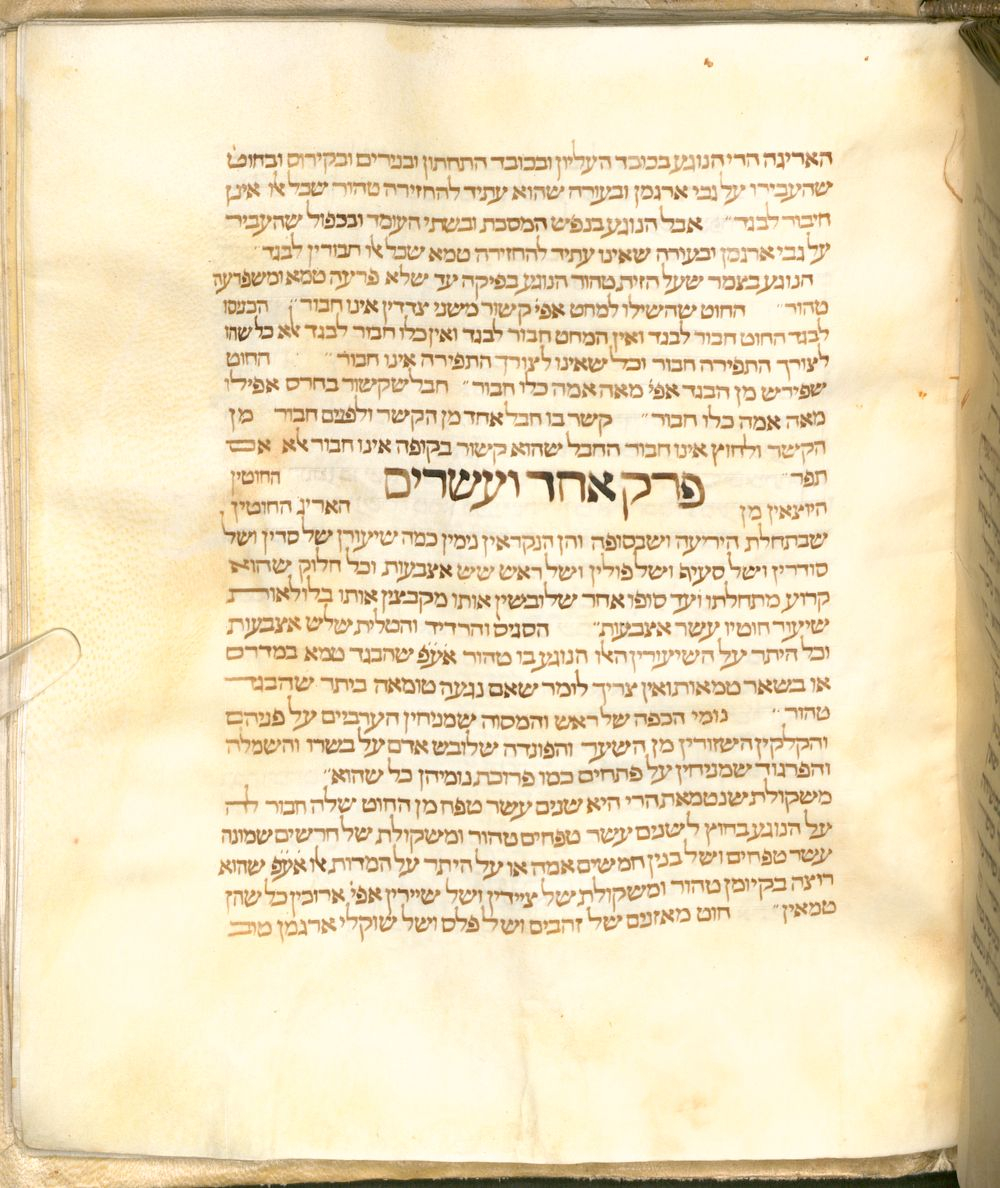 האריגה הרי הנוגע בכובד העליון ובכובד התחתון ובנירים ובקירוס ובחוט
שהעבירו על גבי ארגמן ובעורה שהוא עתיד להחזירה טהור שכל אלו אינן
חיבור לבגד״ אבל הנוגע בנפש המסכת ובשתי העומד ובכפול שהעביר
על גבי ארגמן ובעורה שאינו עתיד להחזירה טמא שכל אלו חבורין לבגד״
הנוגע בצמר שעל הזית טהור הנוגע בפיקה עד שלא פרעה טמא ומשפרעה
טהור״ החוט שהשילו למחט אפי׳ קשור משני צדדין אינו חבור״ הכניסו
לבגד החוט חבור לבגד ואין המחט חבור לבגד ואין כלו חבור לבגד אלא כל שהו
לצורך התפירה חבור וכל שאינו לצורך התפירה אינו חבור״ החוט
שפירש מן הבגד אפי׳ מאה אמה כלו חבור״ חבל שקשור בחרס אפילו
מאה אמה כלו חבור״ קשר בו חבל אחד מן הקשר ולפנים חבור מן
הקשר ולחוץ אינו חבור החבל שהוא קשור בקופה אינו חבור אלא אם
תפר״ פרק אחד ועשרים החוטין
היוצאין מן האריג החוטין
שבתחלת היריעה ושבסופה והן הנקראין נימין כמה שיעורן של סדין ושל
סודרין ושל סעיף ושל פולין ושל ראש שש אצבעות וכל חלוק שהוא
קרוע מתחלתו ועד סופו אחר שלובשין אותו מקבצין אותו בלולאות
שיעור חוטיו עשר אצבעות״ הסגיס והרדיד והטלית שלש אצבעות
וכל היתר על השיעורין האלו הנוגע בו טהור אעפ שהבגד טמא במדרס
או בשאר טמאות ואין צריך לומר שאם נגעה טומאה ביתר שהבגד
טהור״ נומי הכפה של ראש והמסוה שמניחין הערביים על פניהם
והקלקין השזורין מן השער והפונדה שלובש אדם על בשרו והשמלה
והפרגוד שמניחין על פתחים כמו פרוכת נומיהן כל שהוא״
משקולת שנטמאת הרי היא שנים עשר טפח מן החוט שלה חבור לה
על הנוגע בחוץ לשנים עשר טפחים טהור ומשקולת של חרשים שמונה
עשר טפחים ושל בנין חמשים אמה או על היתר על המדות אלו אעפ שהוא
רוצה בקיומן טהור ומשקולת של ציידין ושל שיירין אפי׳ ארוכין כל שהן
טמאין״ חוט מאזנים של זהבים ושל פלס ושל שוקלי ארגמן טוב